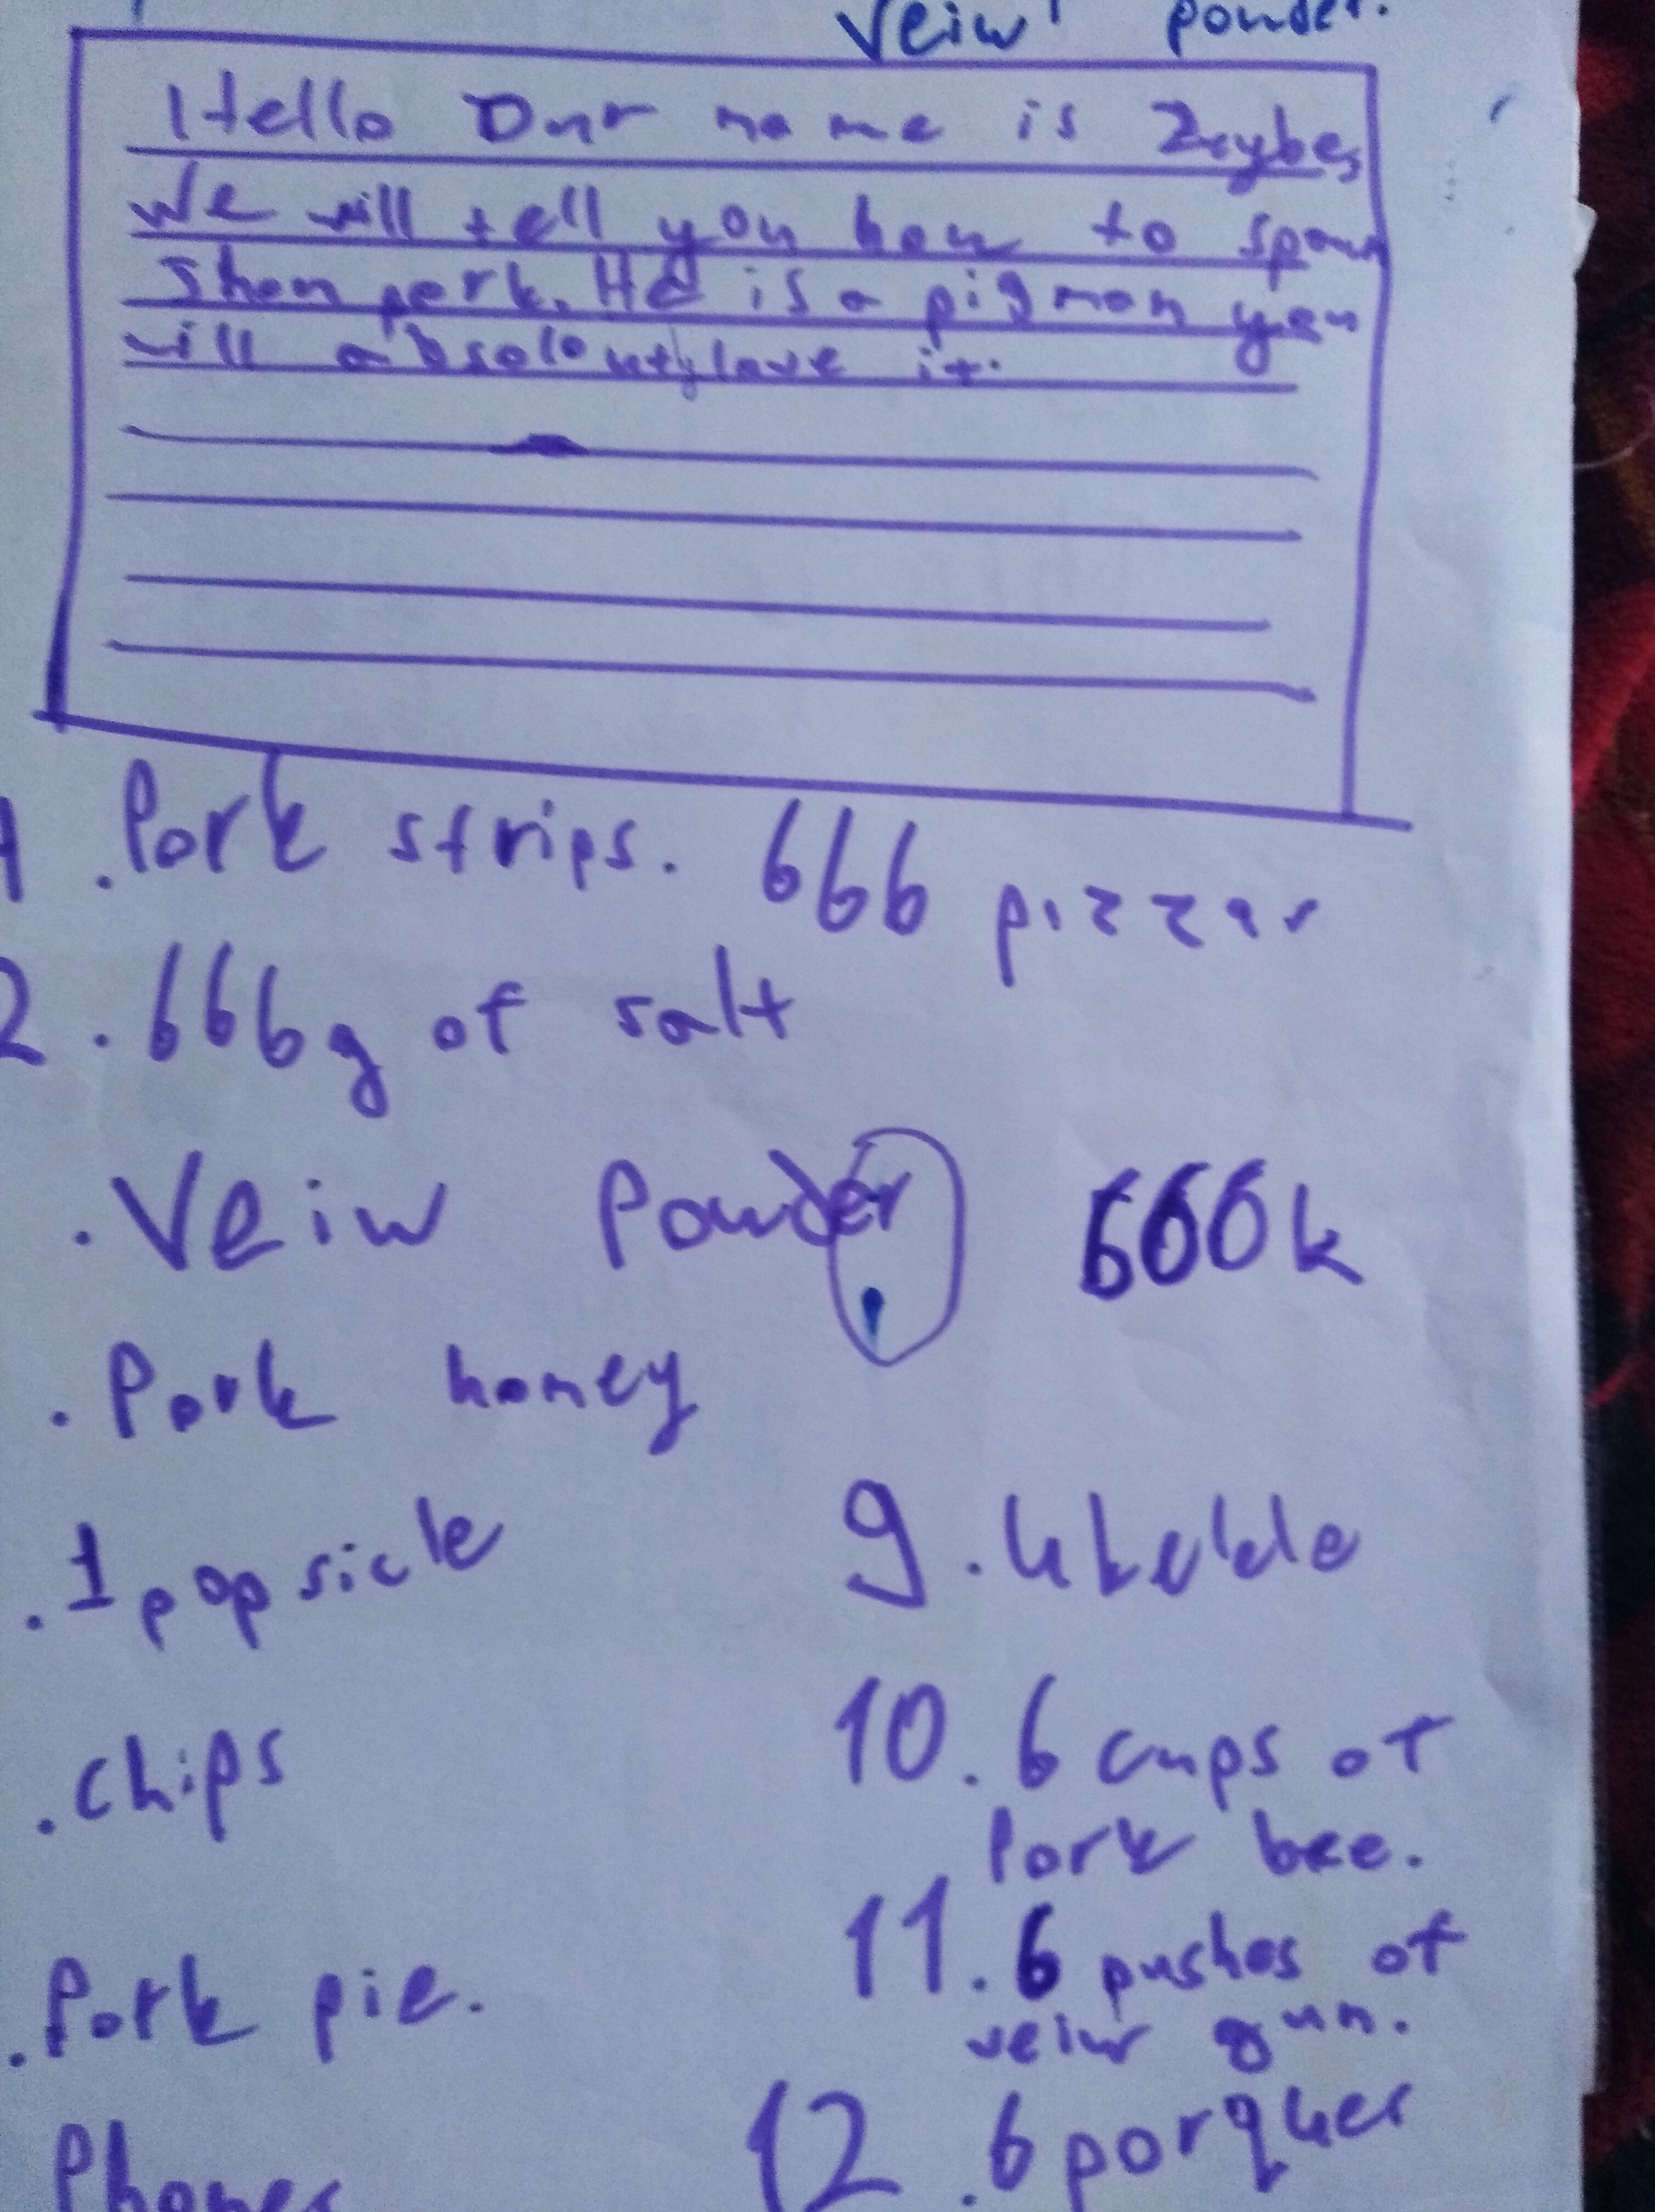 Veiw powder.
Hello Our name is
We will tell you how to spawn
Shon pork. He is a pigman you
will absoloutly love it.
1. Pork strips. 666 pizzas
2. 666g of salt
. Veiw Powder 666k
. Pork honey
. 1 popsicle
. chips
. Pork pie.
Phones
9. Ukelele
10. 6 cups of
Pork bee.
11. 6 pushes of
veiw gun.
12. 6 porques